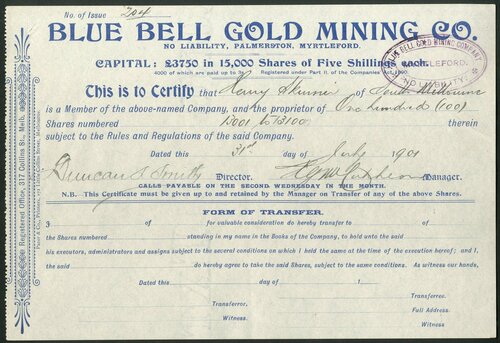 No. of Issue 204
BLUE BELL GOLD MINING CO.
NO LIABILITY, PALMERSTON, MYRTLEFORD.
CAPITAL: £3750 in 15,000 Shares of Five Shillings each.
4000 of which are paid up to 3s. Registered under Part II. of the Companies' Act, 1890.
BLUE BELL GOLD MINING COMPANY
MYRTLEFORD.
NO LIABILITY
This is to Certify that Harry Skinner of South Melbourne
is a Member of the above-named Company, and the proprietor of One hundred (100)
Shares numbered 13001 to 13100 therein
subject to the Rules and Regulations of the said Company.
Dated this 31st day of July 1901
Duncan S Smith Director. Manager.
CALLS PAYABLE ON THE SECOND WEDNESDAY IN THE MONTH.
N.B. This Certificate must be given up to and retained by the Manager on Transfer of any of the above Shares.
FORM OF TRANSFER.
I of for valuable consideration do hereby transfer to of
the Shares numbered standing in my name in the Books of the Company, to hold unto the said
his executors, administrators and assigns subject to the several conditions on which I held the same at the time of the execution hereof; and I,
the said do hereby agree to take the said Shares, subject to the same conditions. As witness our hands,
Dated this day of 1
Transferror. Transferree.
Full Address
Witness Witness
Registered Office, 317 Collins St., Melb.
Collins Street, Melbourne.